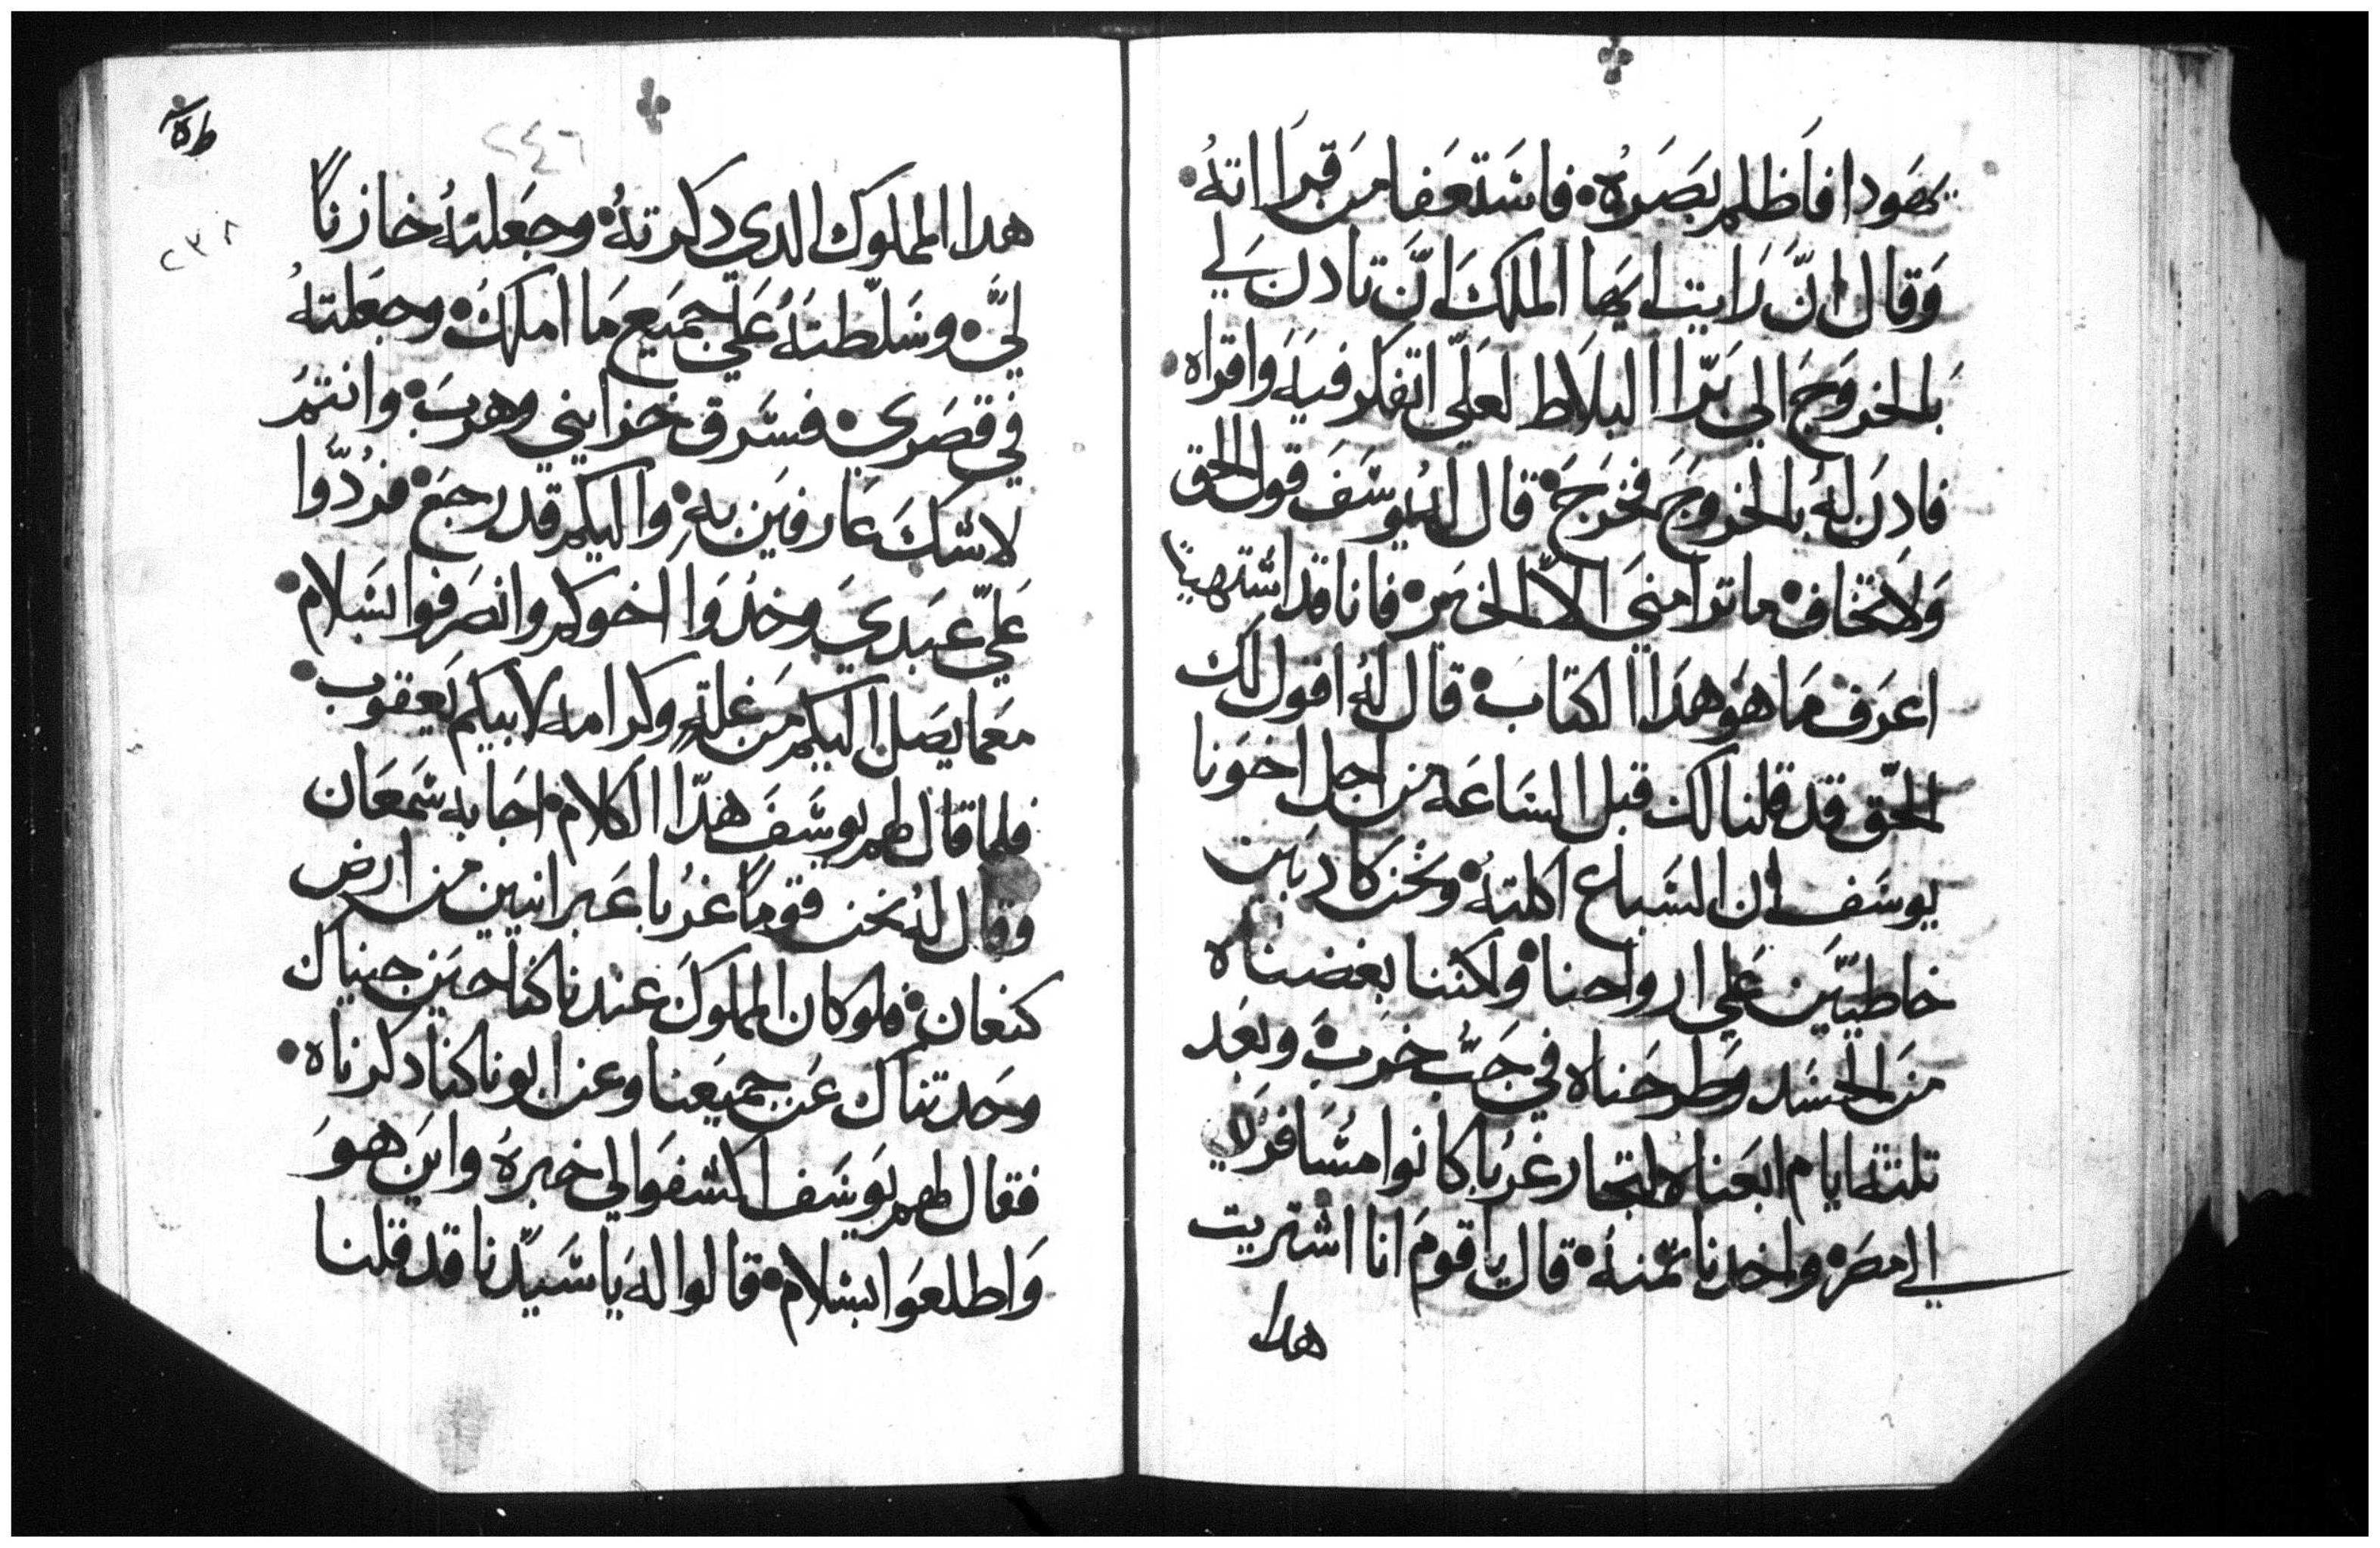 يهَودا فاَظلم بصَرهُ • فاستعَفا من قراَاتهُ •
وَقال انَّ رَايت ايها الملك انَّ تادن لي
بالخروَج الي بَرّا البلاط لعَلّي اتفكر فيهَ وَاقراه •
فادنَ لهُ بالخروَج فخرَجَ • قال لهُ يوسَفَ قول الحق
وَلا تخاف • ما ترا منيَ الاّ الخيَر • فانا قد اشتهيت
اعرَف مَا هوَ هدَا الكتاب • قال لهُ اقول لك
الحّق قد قلنا لك قبل السَاعَه من اجل اخوَنا
يوسَف ان السَباع اكلتهُ • ونحُن كادبَين
خاطييَّن عَلي ارواحنا • ولكننا بغضناه
منَ الحسَد وَطرحَناه في جَبّ خرَب • وبعَد
تلتة ايام ابعَناه لتجار غرُبا كانوا مسَافرَين
الي مصَر • واخدنا تمّنهُ • قال يا قومَ انا اشتريت
هدا
٢٤٦
٢٣٨
هدا المملوَك الدي دكرتهُ • وجعَلتهُ خازناً
ليَّ • وسَلّطتهَُ عَليّ جميَع مَا املكَ • وجعَلتهُ
في قصَري • فسَّرق خزايني وهربَ • وانتمَ
لا شكَ عَارفيَن بهِ • واليكم قد رجعَ • فرُدّوا
عَليّ عبَدي وخدَوا اخوكم وانصَرفوا بسَلام •
معَما يصَل اليكم مَن غلةٍ وكرامه لابيكم يَعقوب •
فلما قال لهم يوسَفَ هدّا الكلام • اجَابه شمَعَان
وقال لهُ نحن قومًا غرُبا عَبرانيين من ارض
كنعان • فلو كان المملوكَ عندنا كنا حيَن جيناك
وحَدتناك عَن جميَعنا وعن ابونا كنا دكرناه •
فقال لهم يوَسَف اكشفوَا لي خبرهُ وايَن هوَ
وَاطلعوَا بسَلام • قالوا لهَ يا سَيّدنا قد قلنا